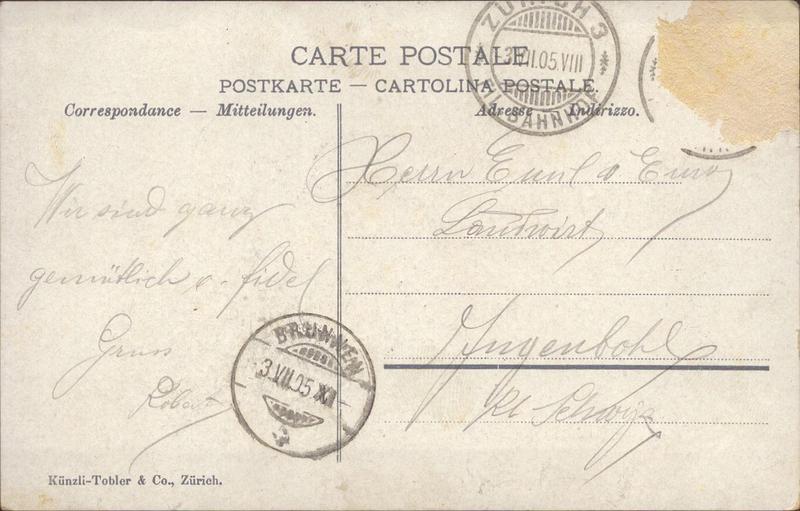 CARTE POSTALE
POSTKARTE — CARTOLINA POSTALE.
Correspondance — Mitteilungen.
Adresse — Indirizzo.
ZÜRICH 3
3.VII.05.VIII
FIL. BAHNHOF
Wir sind ganz
gemütlich u. fidel
Gruss
Robert
Herrn Emil
Landwirt
Ingenbohl
Kt Schwyz
BRUNNEN
3.VII.05.XI
Künzli-Tobler & Co., Zürich.